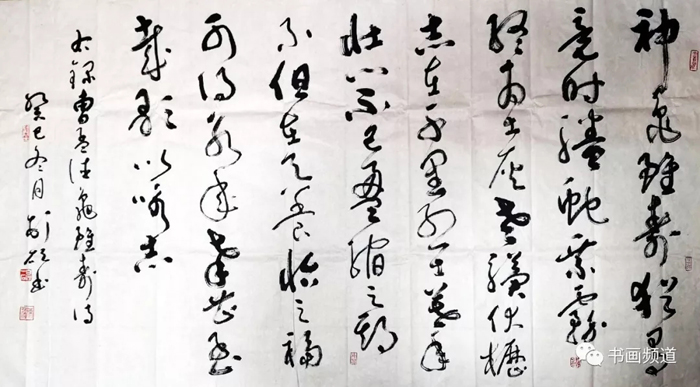 神龜雖壽猶有
竟時騰蛇乘霧
終為土灰老驥伏櫪
志在千里烈士暮年
壯心不已盈縮之期
不但在天養怡之福
可得永年幸甚至
哉歌以詠志
右錄曹孟德龜雖壽詩
癸巳冬月
书画频道